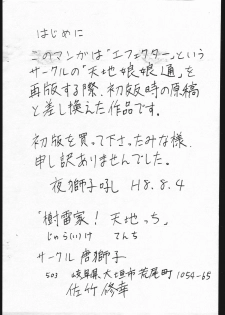 はじめに
このマンガは「エフェクター」という
サークルの「天地娘娘通」を
再版する際、初版時の原稿
と差し換えた作品です。
初版を買って下さったみな様、
申し訳ありませんでした。
夜獅子吼し H8.8.4
「樹雷家！天地っち」
じゅらいけ てんち
サークル 唐獅子
503 岐阜県大垣市荒尾町1054-65
佐竹修幸